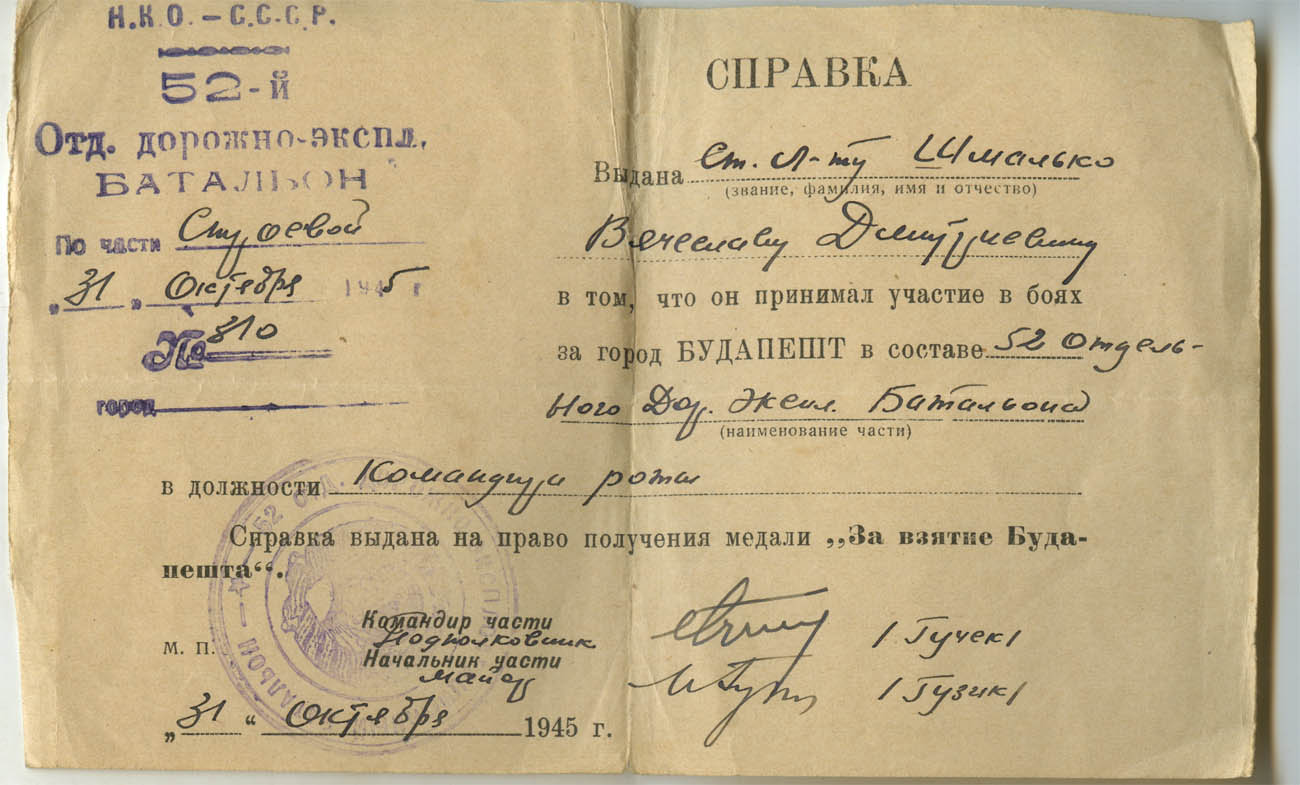 Н.К.О. – С.С.С.Р.
52-й
Отд. дорожно-экспл.
БАТАЛЬОН
По части Строевой
„31„ Октября 1945 г
№ 310
город
СПРАВКА
Выдана Ст. Л-ту Шмалько
(звание, фамилия, имя и отчество)
Вячеславу Дмитриевичу
в том, что он принимал участие в боях
за город БУДАПЕШТ в составе 52 Отдель-
ного Дор. Экспл. Батальона
(наименование части)
в должности Командира роты
Справка выдана на право получения медали „За взятие Буда-
пешта“.
Командир части
Подполковник /Гучек/
М. П.
Начальник части
майор /Гузик/
„31“ Октября 1945 г.